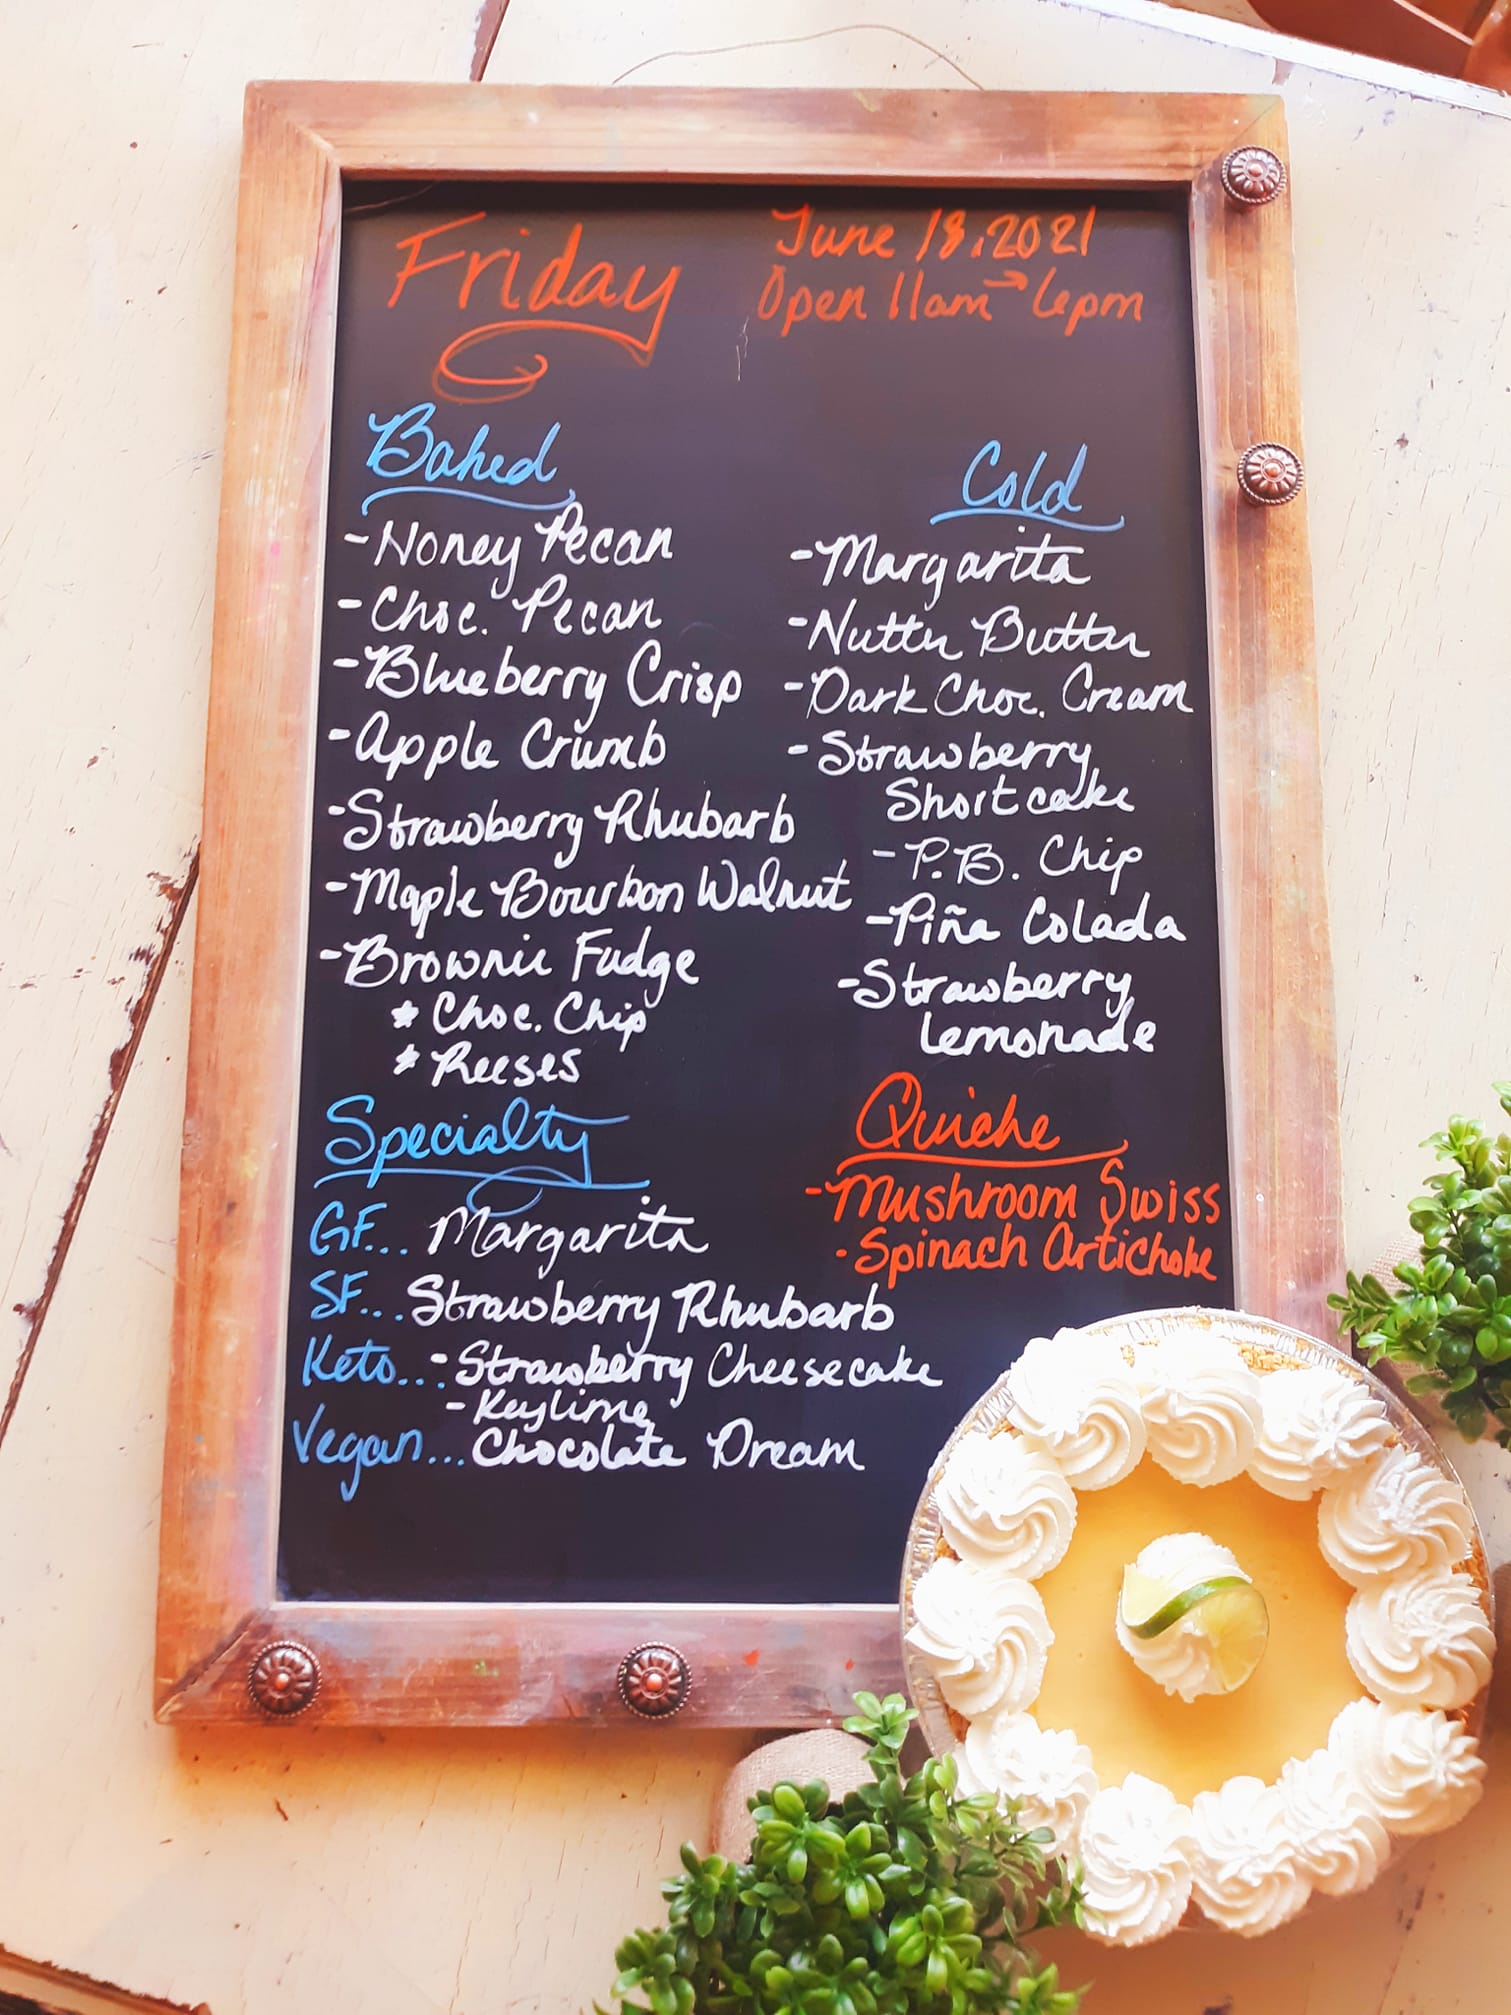 Friday
June 18, 2021
Open 11am → 6pm
Baked
- Honey Pecan
- Choc. Pecan
- Blueberry Crisp
- Apple Crumb
- Strawberry Rhubarb
- Maple Bourbon Walnut
- Brownie Fudge
* Choc. Chip
* Reeses
Cold
- Margarita
- Nutter Butter
- Dark Choc. Cream
- Strawberry
Shortcake
- P.B. Chip
- Piña Colada
- Strawberry
Lemonade
Quiche
- Mushroom Swiss
- Spinach Artichoke
Specialty
GF... Margarita
SF... Strawberry Rhubarb
Keto... - Strawberry Cheesecake
- Keylime
Vegan... Chocolate Dream